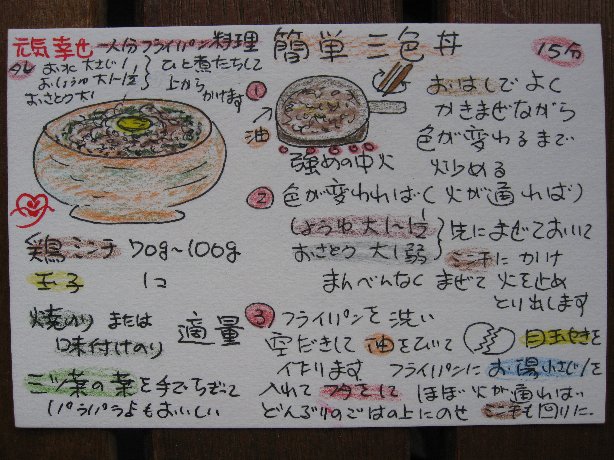 元気幸せ 一人分フライパン料理 簡単 三色丼 15分
タレ お水 大さじ1
おしょうゆ大1~1/2
おさとう大1
ひと煮たちして
上から
かけます
鶏ミンチ 70g~100g
玉子 1コ
焼のり または
味付けのり
適量
三ツ葉の葉を手でちぎって
パラパラもおいしい
① 油
強めの中火
おはしで よく
かきまぜながら
色が変わるまで
炒める
② 色が変われば(火が通れば)
しょうゆ 大1~1/2
おさとう 大1弱
先にまぜておいて
ミンチに かけ
まんべんなく まぜて 火を止め
とり出します
③ フライパンを 洗い
空だきして 油をひいて 目玉やきを
作ります フライパンに お湯小さじ1を
入れて フタをして ほぼ火が通れば
どんぶりのごはんの上にのせ ミンチも回りに.